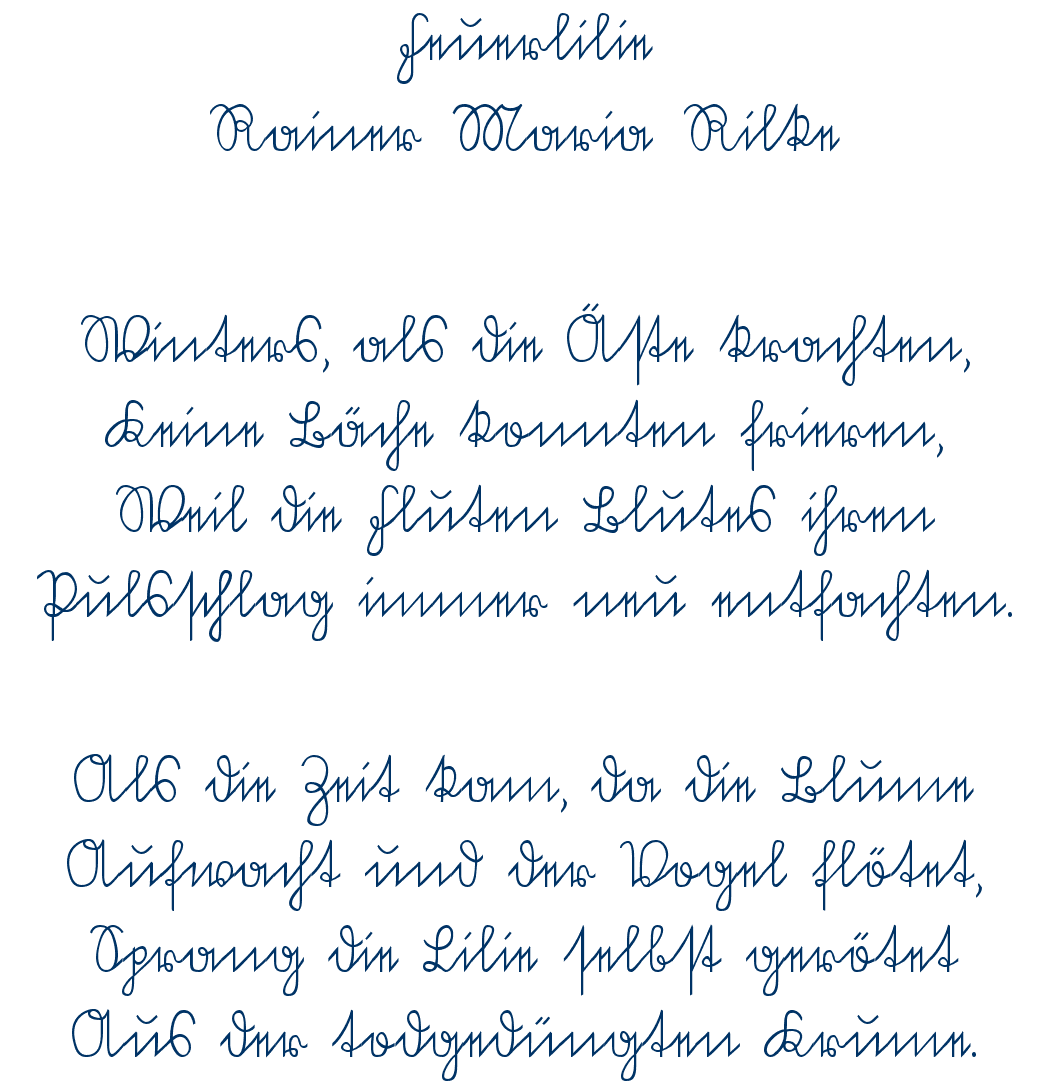 Feuerlilie
Rainer Maria Rilke
Winters, als die Äste krachten,
Keine Bäche konnten frieren,
Weil die Fluten Blutes ihren
Pulsschlag immer neu entfachten.
Als die Zeit kam, da die Blume
Aufwacht und der Vogel flötet,
Sprang die Lilie selbst gerötet
Aus der todgedüngten Krume.